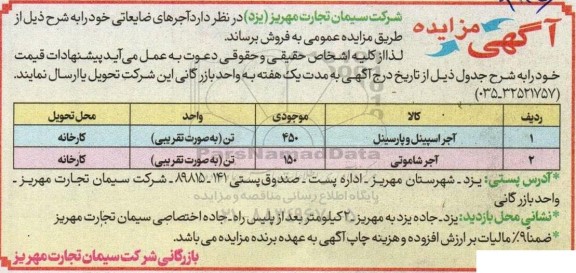 آگهی مزایده
شرکت سیمان تجارت مهریز (یزد) در نظر دارد آجرهای ضایعاتی خود را به شرح ذیل از
طریق مزایده عمومی به فروش برساند.
لذا از کلیه اشخاص حقیقی و حقوقی دعوت به عمل می آید پیشنهادات قیمت
خود را به شرح جدول ذیل از تاریخ درج آگهی به مدت یک هفته به واحد بازرگانی این شرکت تحویل یا ارسال نمایند.
(۰۳۵-۳۲۵۲۱۷۵۷)
ردیف کالا موجودی واحد محل تحویل
۱ آجر اسپینل و پارسینل ۴۵۰ تن (به صورت تقریبی) کارخانه
۲ آجر شاموتی ۱۵۰ تن (به صورت تقریبی) کارخانه
ParsNamadData
پایگاه اطلاع رسانی مناقصه و مزایده
*آدرس پستی: یزد ـ شهرستان مهریز ـ اداره پست ـ صندوق پستی ۱۴۱ ـ ۸۹۸۱۵ ـ شرکت سیمان تجارت مهریز ـ
واحد بازرگانی
*نشانی محل بازدید: یزد ـ جاده یزد به مهریز ـ ۲ کیلومتر بعد از پلیس راه ـ جاده اختصاصی سیمان تجارت مهریز
*ضمنا ۹٪ مالیات بر ارزش افزوده و هزینه چاپ آگهی به عهده برنده مزایده می باشد.
بازرگانی شرکت سیمان تجارت مهریز